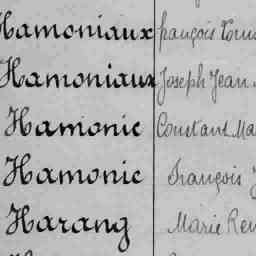 Hamoniaux françois Louis
Hamoniaux Joseph Jean
Hamonic Constant Ma
Hamonic françois J
Harang Marie Ren